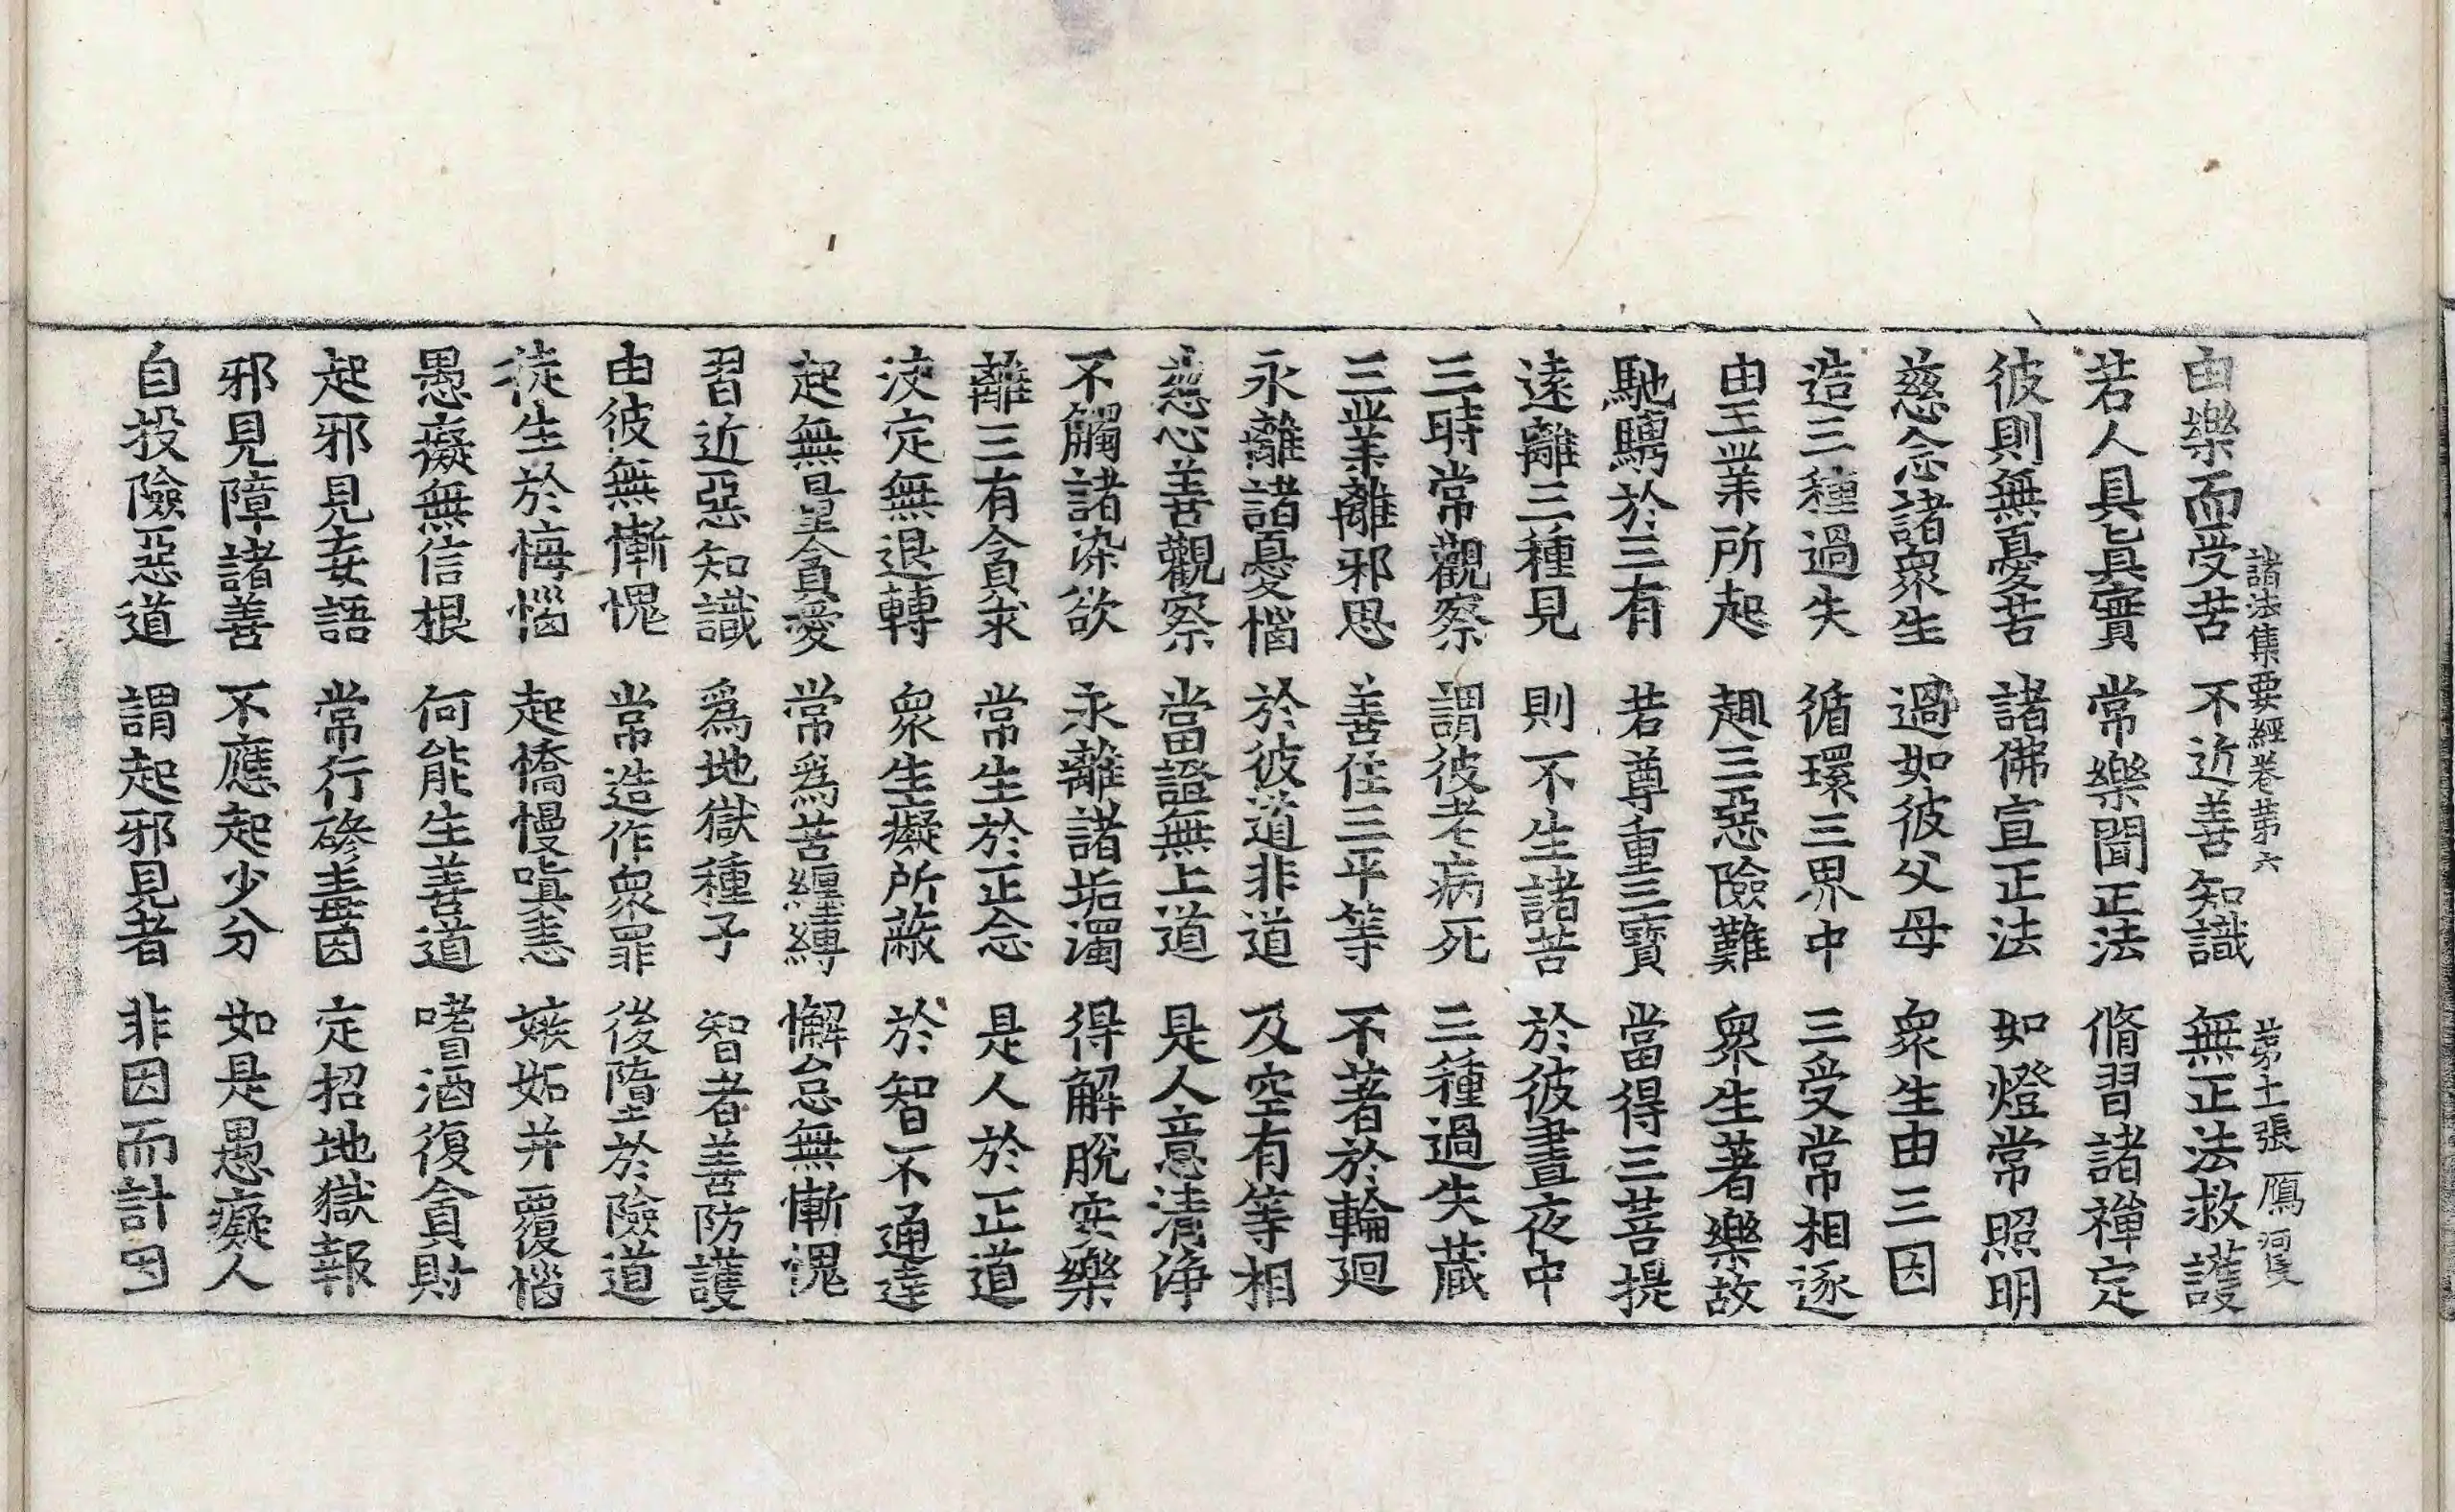 諸法集要經卷苐六 苐十一張 鴈 河隻
由樂而受苦 不近善知識 無正法救護
若人具眞實 常樂聞正法 脩習諸禅定
彼則無憂苦 諸佛宣正法 如燈常照明
慈念諸衆生 過如彼父母 衆生由三因
造三種過失 循環三界中 三受常相逐
由三業所起 趣三惡險難 衆生著樂故
馳騁於三有 若尊重三寳 當得三菩提
逺離三種見 則不生諸苦 於彼晝夜中
三時常觀察 謂彼老病死 三種過失蔵
三業離邪思 善住三平等 不著於輪廻
永離諸憂惱 於彼道非道 及空有等相
慈心善觀察 當證無上道 是人意清浄
不觸諸染欲 永離諸垢濁 得解脫安樂
離三有貪求 常生於正念 是人於正道
决定無退轉 衆生癡所蔽 於智不通達
起無量貪愛 常爲苦纏縛 懈怠無慚愧
習近惡知識 爲地獄種子 智者善防護
由彼無慚愧 常造作衆罪 後墮於險道
徒生於悔惱 起憍慢嗔恚 嫉妬并覆惱
愚癡無信根 何能生善道 嗜酒復貪財
起邪見妄語 常行磣毒因 定招地獄報
邪見障諸善 不應起少分 如是愚癡人
自投險惡道 謂起邪見者 非因而計因